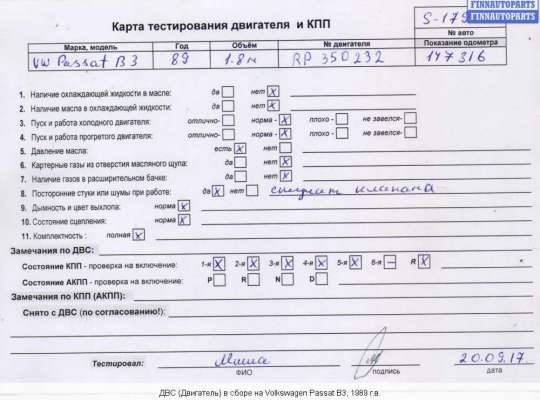 FINNAUTOPARTS
FINNAUTOPARTS
Карта тестирования двигателя и КПП
S-179
№ авто
Марка, модель Год Объём № двигателя Показание одометра
VW Passat B3 89 1.8 RP 350232 147316
1. Наличие охлаждающей жидкости в масле: да нет X
2. Наличие масла в охлаждающей жидкости: да нет X
3. Пуск и работа холодного двигателя: отлично- норма - X плохо - не завелся-
4. Пуск и работа прогретого двигателя: отлично- норма - X плохо - не завелся-
5. Давление масла: есть X нет
6. Картерные газы из отверстия масляного щупа: да нет X
7. Наличие газов в расширительном бачке: да нет X
8. Посторонние стуки или шумы при работе: да X нет стучат клапана
9. Дымность и цвет выхлопа: норма X
10. Состояние сцепления: норма X
11. Комплектность : полная X
Замечания по ДВС:
Состояние КПП - проверка на включение: 1-я X 2-я X 3-я X 4-я X 5-я X 6-я — R X
Состояние АКПП - проверка на включение: P R N D
Замечания по КПП (АКПП):
Снято с ДВС (по согласованию!):
Тестировал: Миша 20.09.17.
ФИО подпись дата
ДВС (Двигатель) в сборе на Volkswagen Passat B3, 1989 г.в.